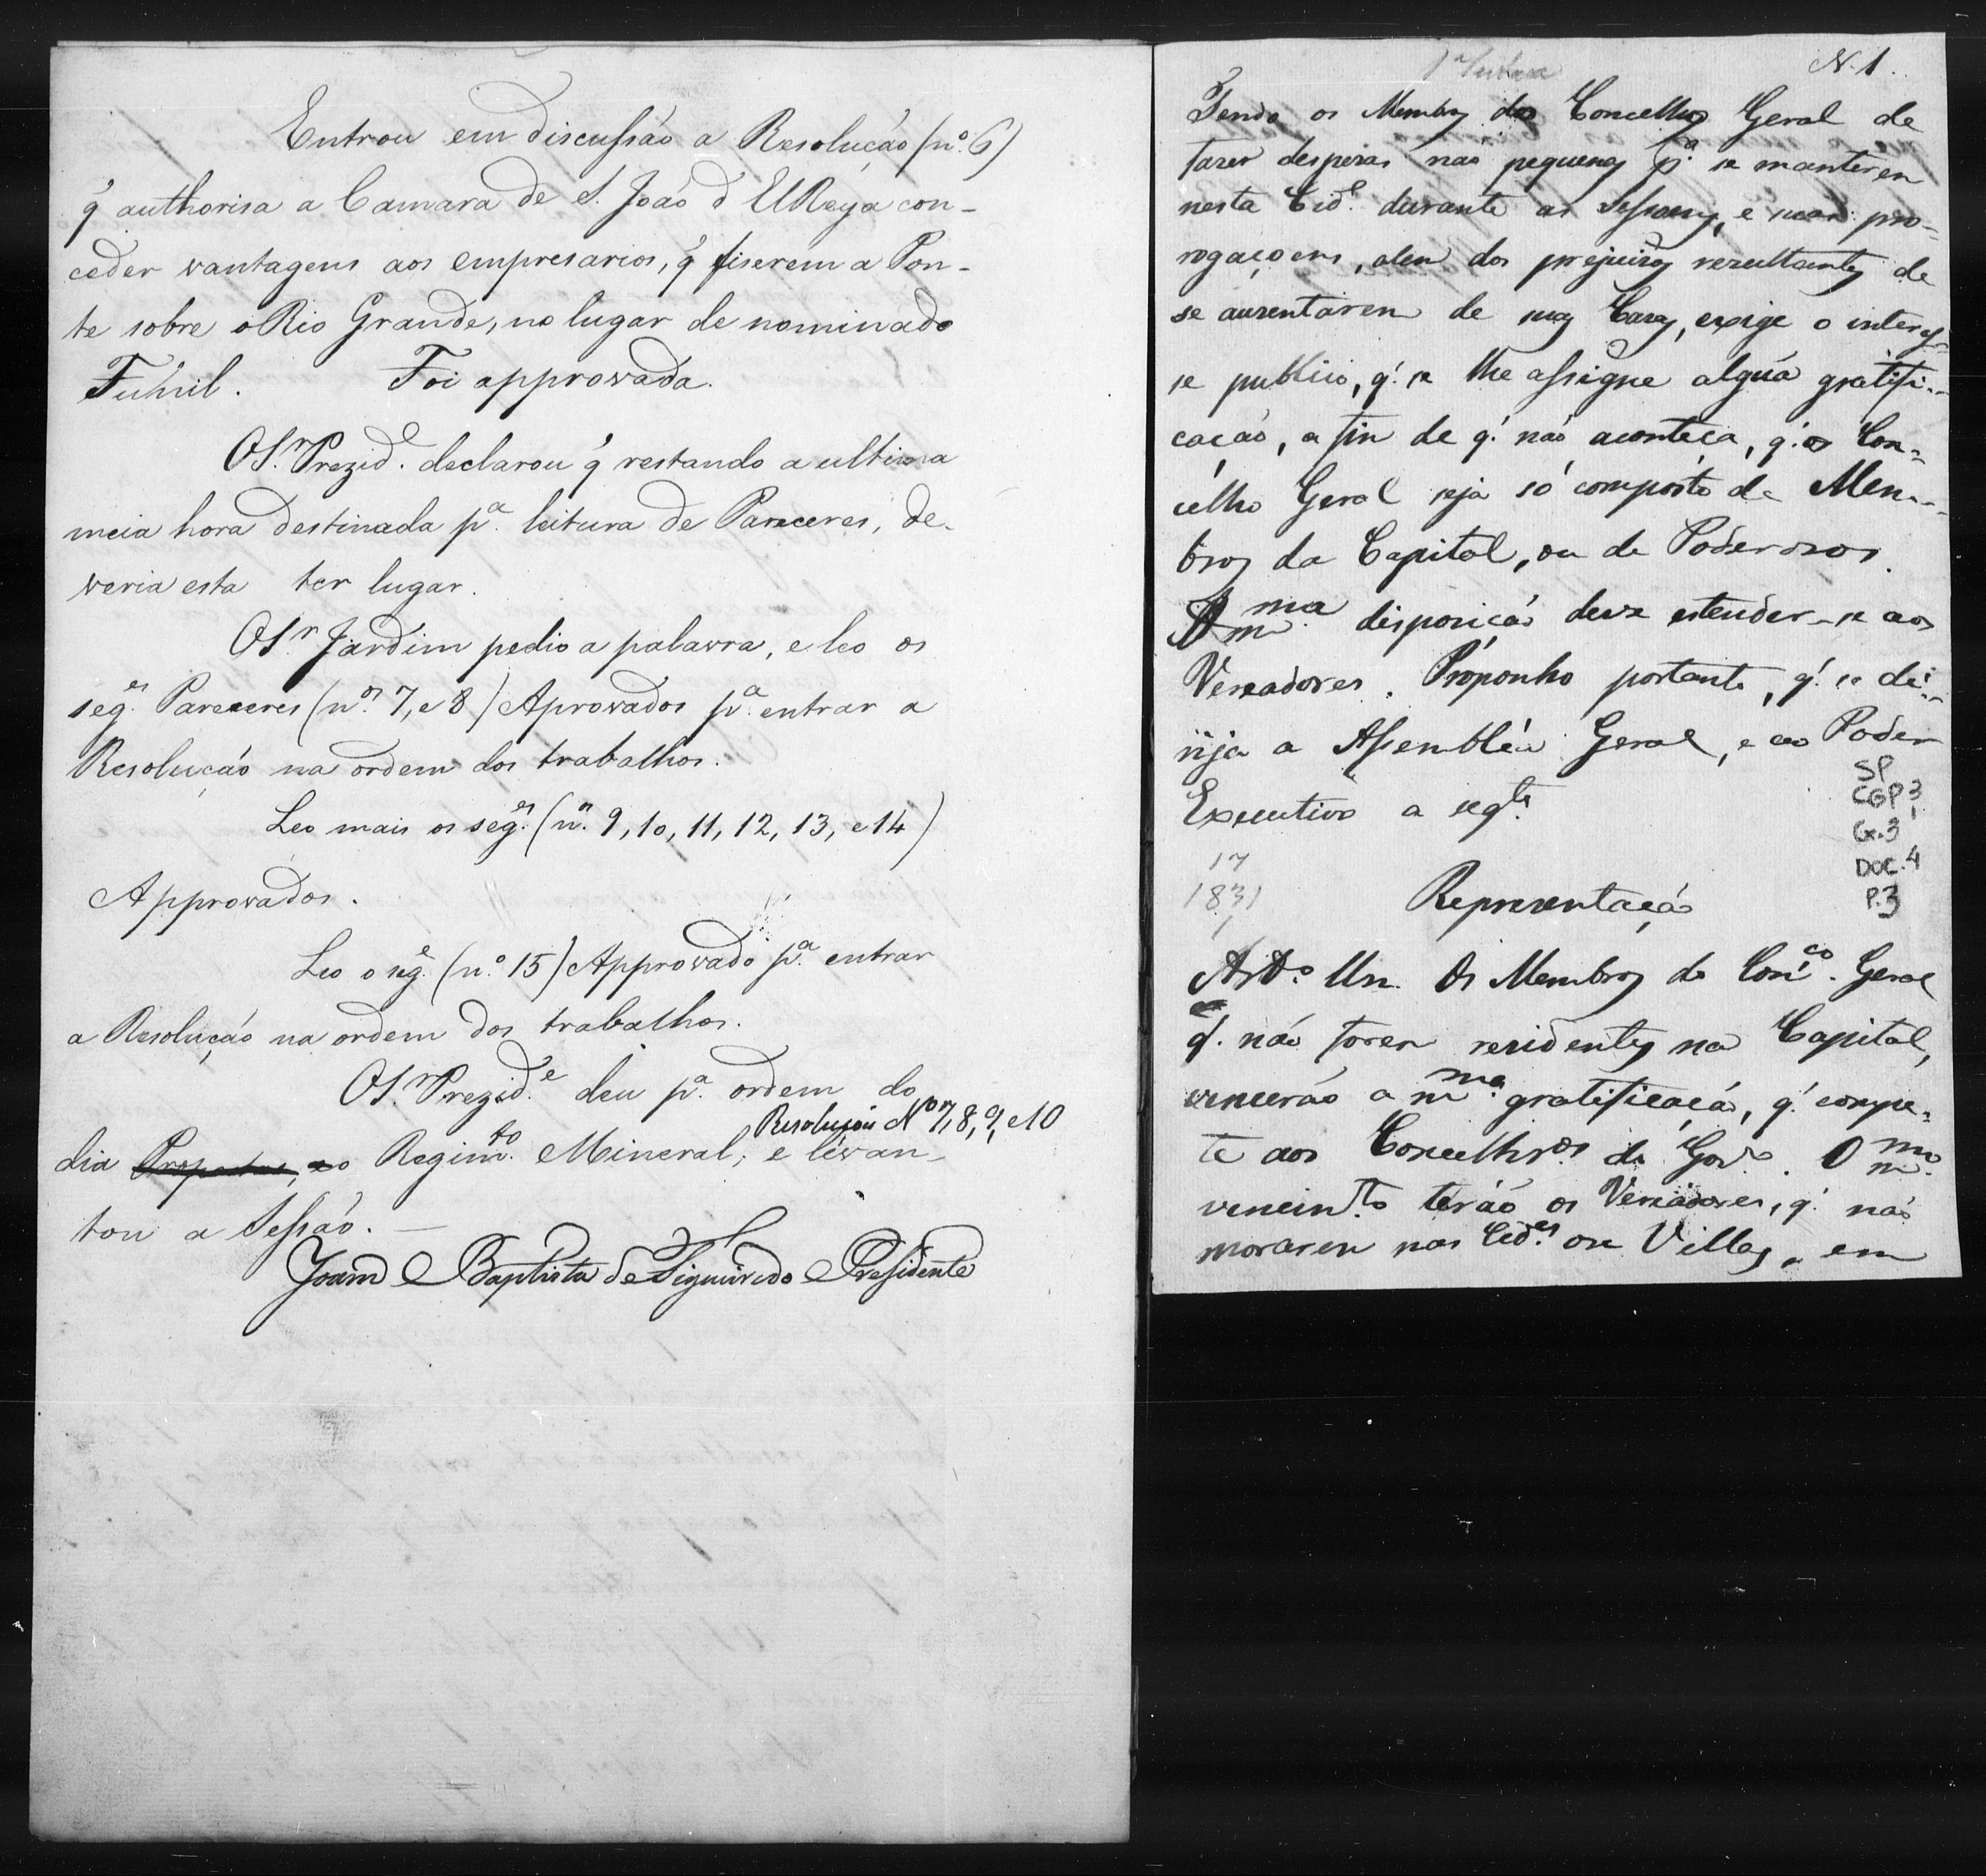 Entrou em discussão a Resolução (nº. 6)
q̃ authorisa a Camara de S. João d'ElRey a con-
ceder vantagens aos empresarios, q̃ fiserem a Pon-
te sobre o Rio Grande, no lugar de nominado
Funil. Foi approvada.
O Sr. Prezide. declarou q̃ restando a ultima
meia hora destinada pa. leitura de Pareceres, de-
veria esta ter lugar.
O Sr. Jardim pedio a palavra, e leo os
seges. Pareceres (nos. 7, e 8) Aprovados pa. entrar a
Resolução na ordem dos trabalhos.
Leo mais os seges. (ns. 9, 10, 11, 12, 13, e 14)
Approvados.
Leo o sege. (nº. 15) Approvado pa. entrar
a Resolução na ordem dos trabalhos.
O Sr. Prezide. deu pa. ordem do
Resoluçois Nos 7, 8, 9, e 10
dia Propostas, e o Regimto. Mineral; e levan-
tou a Sessão. —
Joam Baptista de Figueiredo Presidente
1ª Leitura
N. 1.
Tendo os Membros dos Concelhos Geral de
fazer despezas não pequenas pa. se manterem
nesta Cide. durante as Sessoens, e suas pro-
rogaçoens, alem dos prejuizos rezultantes de
se auzentarem de suas Cazas, exige o interes-
se publico, q'. se lhe assigne algúa gratifi-
cação, a fim de q'. não aconteça, q'. o Con-
celho Geral seja só composto de Mem-
bros da Capital, ou de Poderosos.
A mma. disposição deve estender-se aos
Vereadores. Proponho portanto, q'. se di-
rija a Assembléa Geral, e ao Poder
Executivo a segte.
SP
CGP 3
Cx. 3
DOC. 4
P. 3
17
1831
Representação
Arto. Un. Os Membros do Conco. Geral
q'. não forem residentes na Capital,
vencerão a mma. gratificação, q'. compe-
te aos Concelhros. do Govo. O mmo.
vencimto. terão os Vereadores, q'. não
morarem nas Cides. ou Villas, em